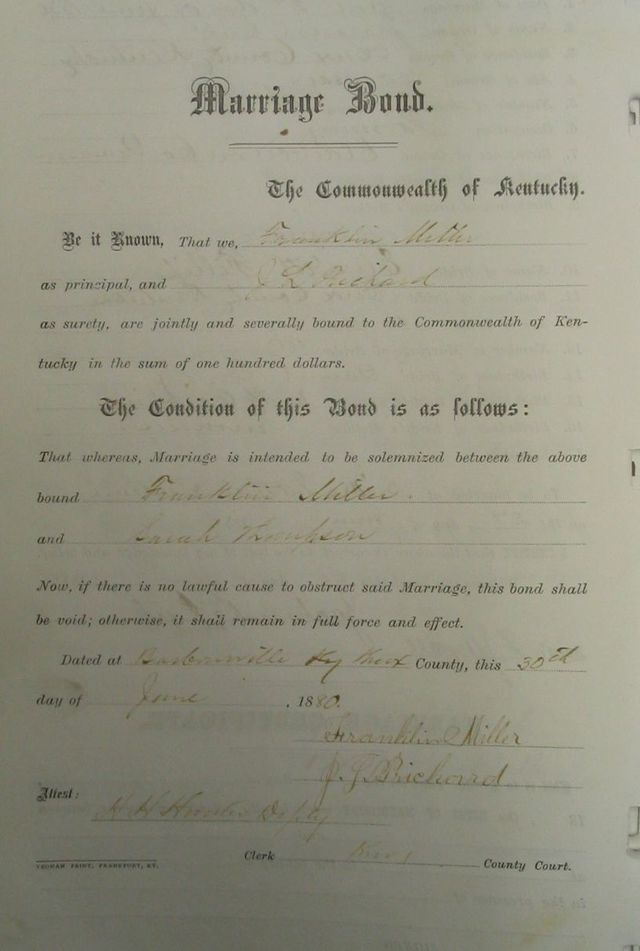 Marriage Bond.
The Commonwealth of Kentucky.
Be it Known, That we, Franklin Miller
as principal, and J L Prichard
as surety, are jointly and severally bound to the Commonwealth of Ken-
tucky in the sum of one hundred dollars.
The Condition of this Bond is as follows:
That whereas, Marriage is intended to be solemnized between the above
bound Franklin Miller.
and Sarah Thompson
Now, if there is no lawful cause to obstruct said Marriage, this bond shall
be void; otherwise, it shall remain in full force and effect.
Dated at Barbourville Ky Knox County, this 30th
day of June , 1880.
Franklin Miller
Prichard
Attest:
H H Depty
Clerk Knox County Court.
YEOMAN PRINT, FRANKFORT, KY.